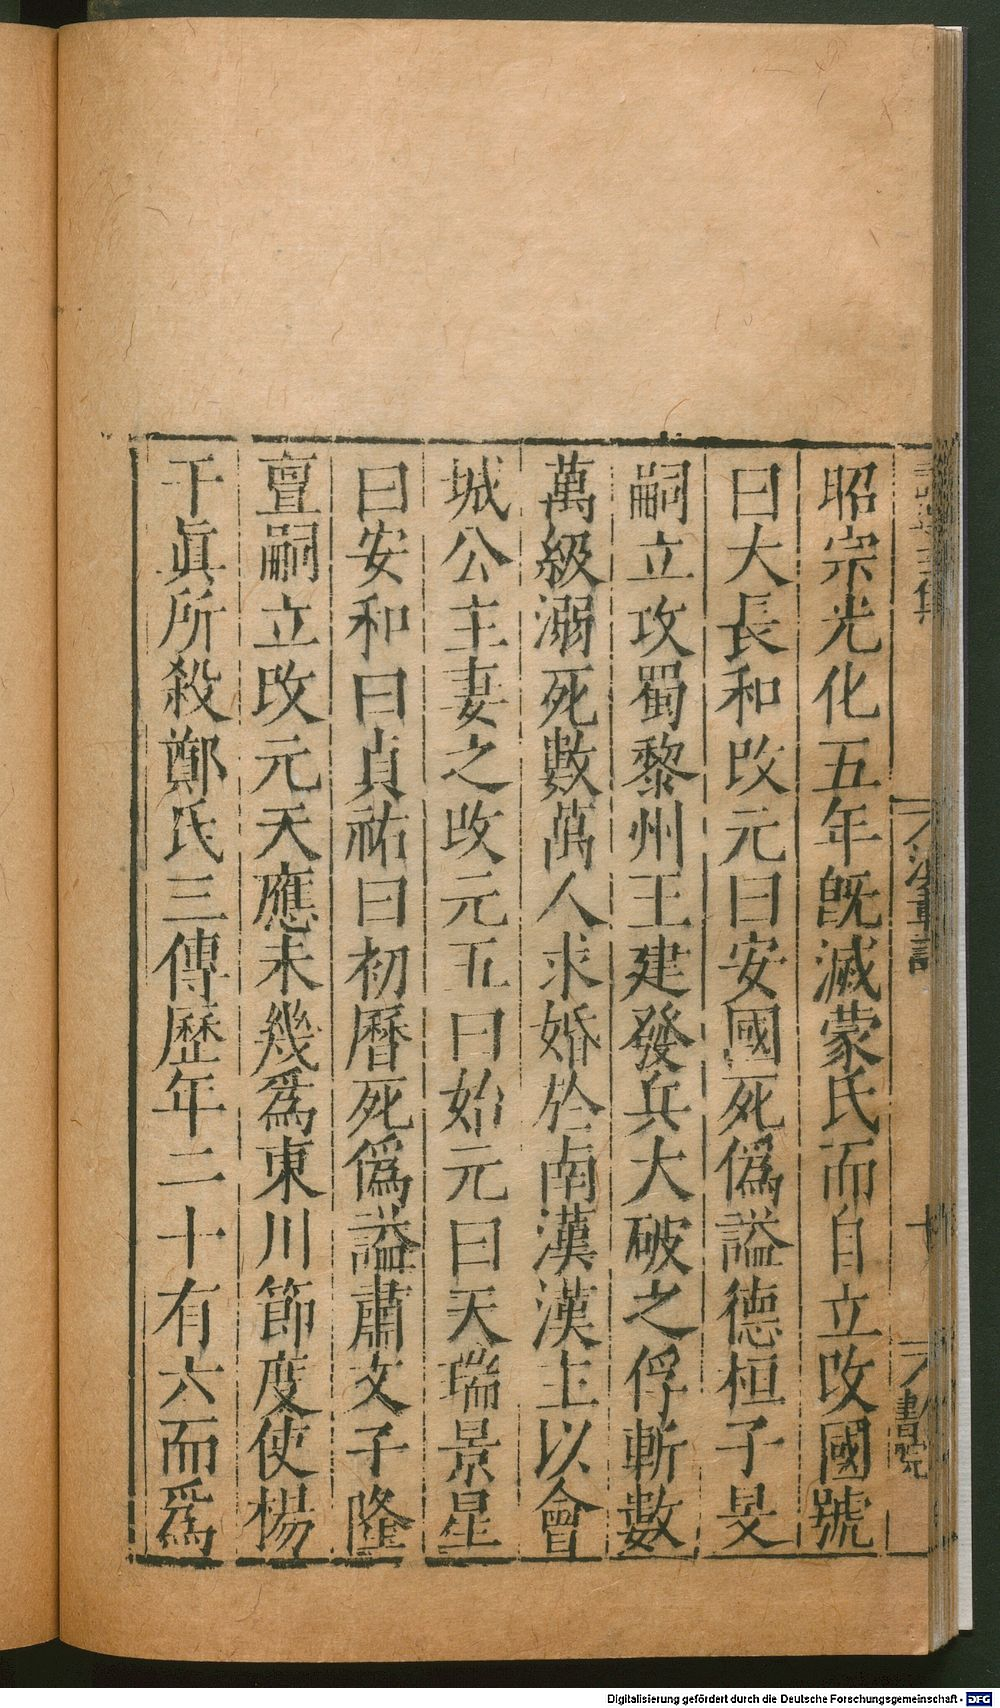 昭宗光化五年旣滅蒙氏而自立改國號
曰大長和改元曰安國死僞謚德桓子旻
嗣立攻蜀黎州王建發兵大破之俘斬數
萬級溺死數萬人求婚於南漢漢主以會
城公主妻之改元五曰始元曰天瑞景星
曰安和曰貞祐曰初曆死僞謚肅文子隆
亶嗣立改元天應未幾爲東川節度使楊
干眞所殺鄭氏三傳歷年二十有六而爲
書院
Digitalisierung gefördert durch die Deutsche Forschungsgemeinschaft - DFG